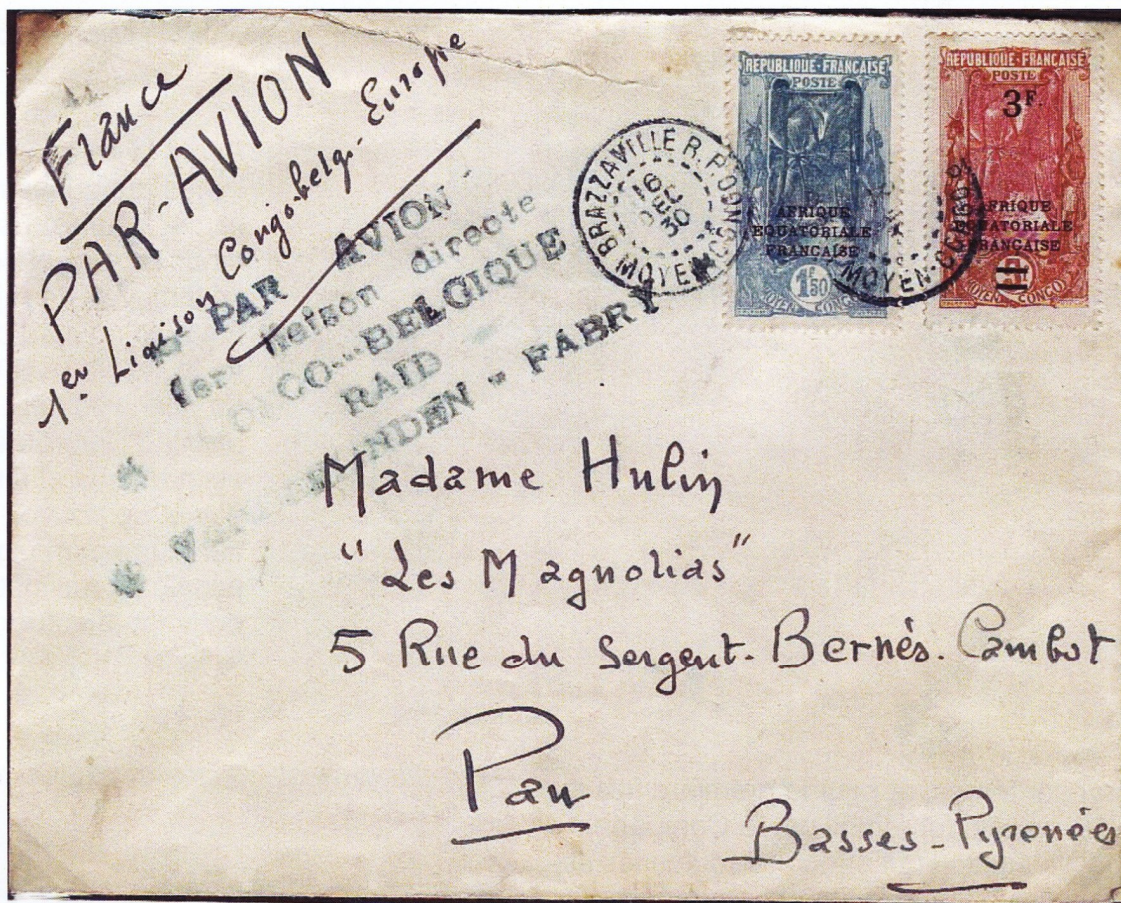 France
PAR-AVION
1er Liaison Congo-belge-Europe
PAR AVION-
1er liaison directe
CONGO-BELGIQUE
RAID
- FABRY
BRAZZAVILLE R.P.
16 DEC 30
MOYEN-CONGO
REPUBLIQUE·FRANÇAISE
POSTE
AFRIQUE
EQUATORIALE
FRANÇAISE
1F50
MOYEN CONGO
REPUBLIQUE·FRANÇAISE
POSTE
3F.
AFRIQUE
EQUATORIALE
FRANÇAISE
5F
MOYEN CONGO
MOYEN-CONGO
Madame Hulin
"Les Magnolias"
5 Rue du Sergent-Bernès-Cambot
Pau
Basses-Pyrenées